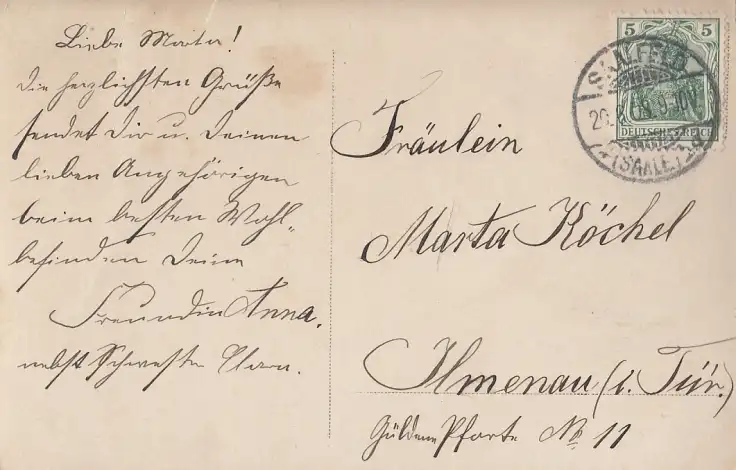 Liebe Marta!
Die herzlichsten Grüße
sendet Dir u. Deinen
lieben Angehörigen
beim besten Wohl-
befinden Deine
Freundin Anna.
nebst Schwester Clara.
5 5
DEUTSCHES REICH
SAALFELD
20. 08.9-10V
(SAALE)
Fräulein
Marta Köchel
Ilmenau (i. Tür.)
Güldene Pforte No 11